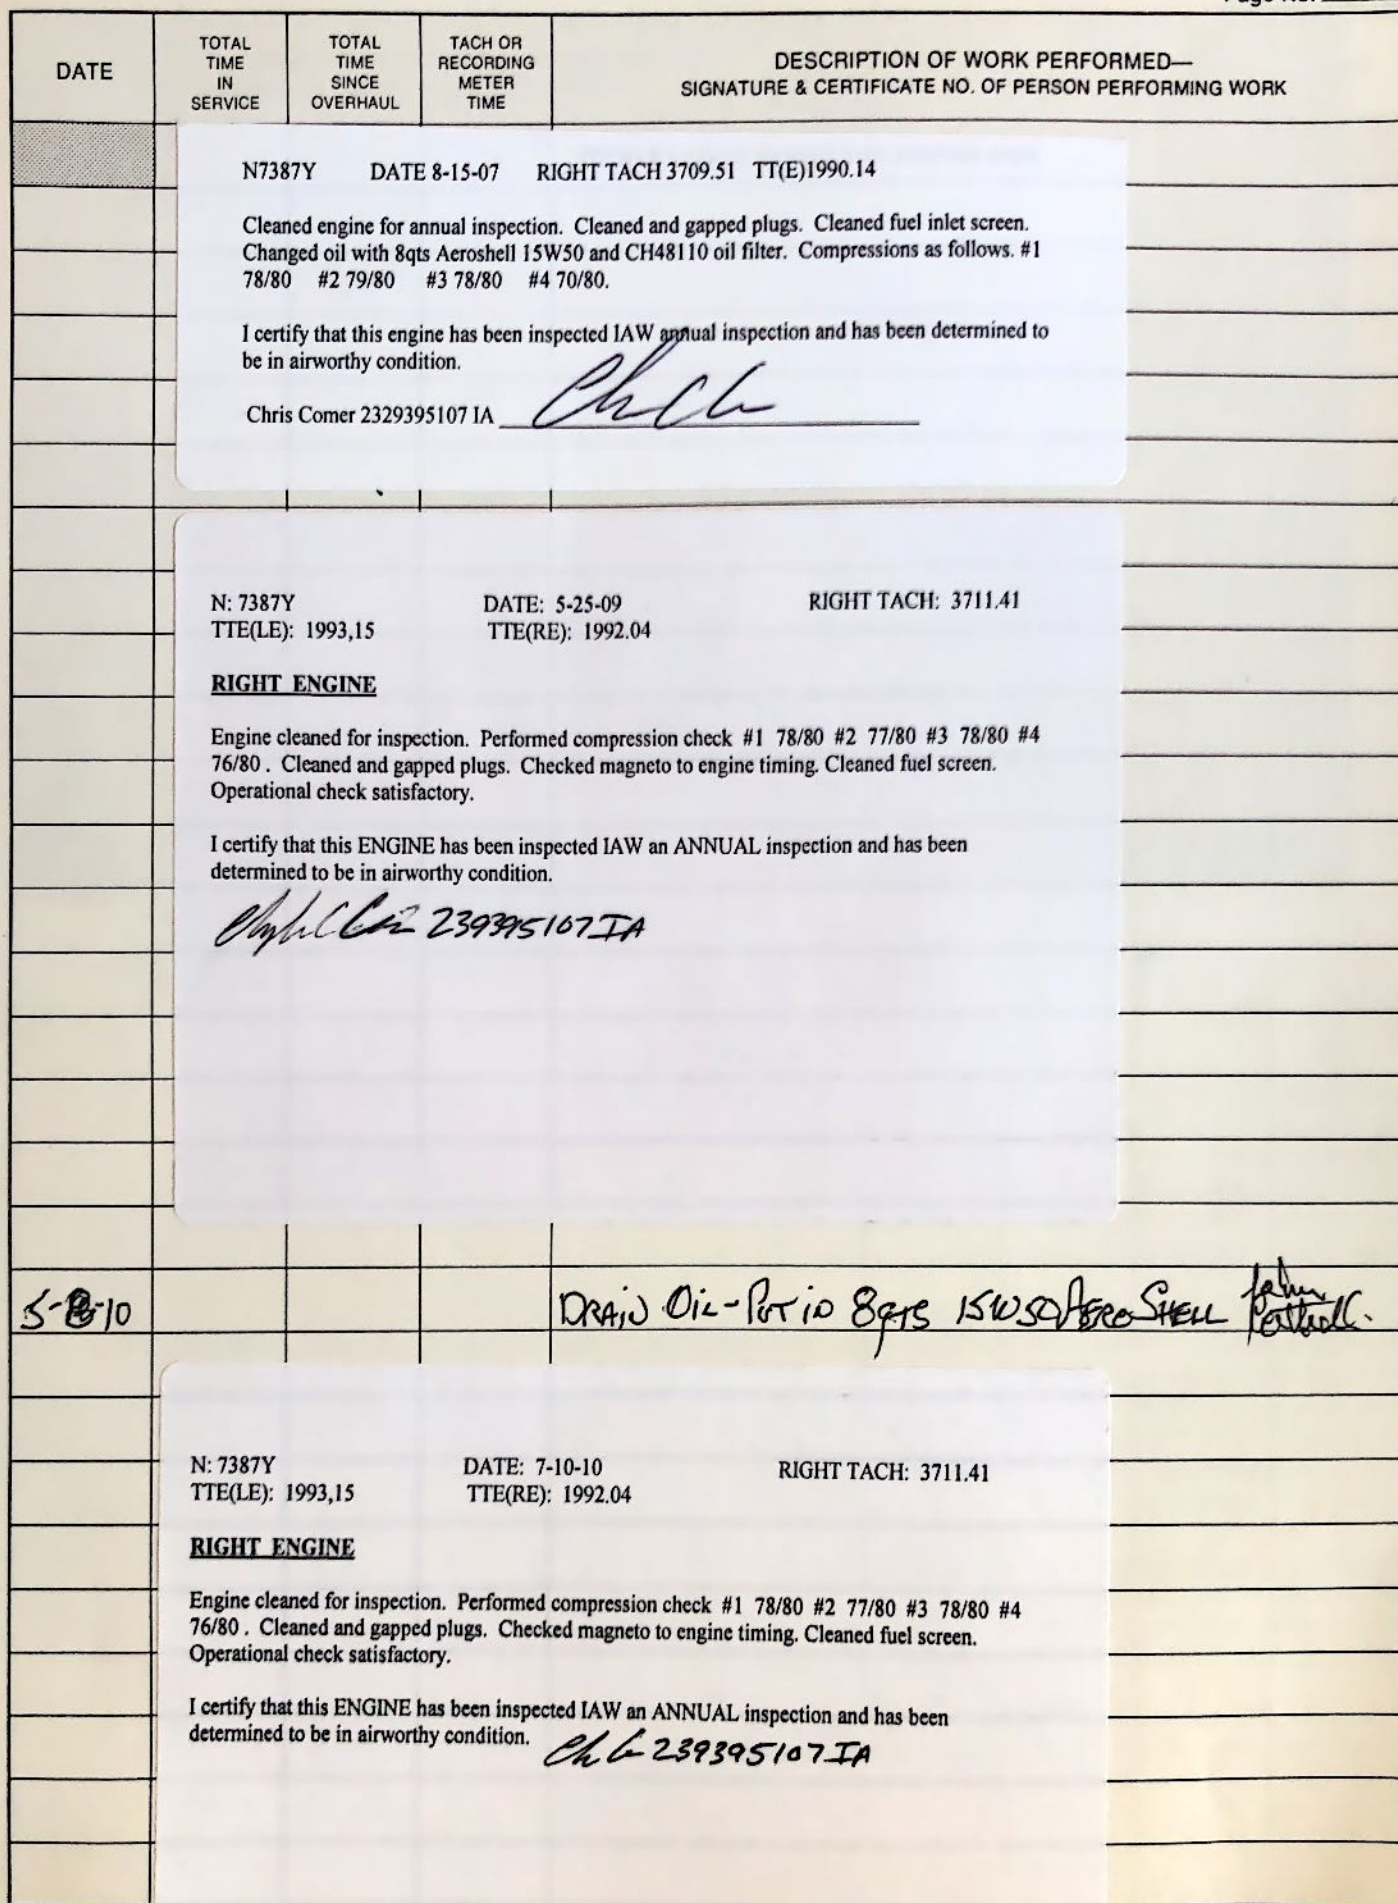 DATE
TOTAL TIME IN SERVICE
TOTAL TIME SINCE OVERHAUL
TACH OR RECORDING METER TIME
DESCRIPTION OF WORK PERFORMED—
SIGNATURE & CERTIFICATE NO. OF PERSON PERFORMING WORK
N7387Y DATE 8-15-07 RIGHT TACH 3709.51 TT(E)1990.14
Cleaned engine for annual inspection. Cleaned and gapped plugs. Cleaned fuel inlet screen.
Changed oil with 8qts Aeroshell 15W50 and CH48110 oil filter. Compressions as follows. #1
78/80 #2 79/80 #3 78/80 #4 70/80.
I certify that this engine has been inspected IAW annual inspection and has been determined to
be in airworthy condition.
Chris Comer 2329395107 IA
N: 7387Y DATE: 5-25-09 RIGHT TACH: 3711.41
TTE(LE): 1993,15 TTE(RE): 1992.04
RIGHT ENGINE
Engine cleaned for inspection. Performed compression check #1 78/80 #2 77/80 #3 78/80 #4
76/80 . Cleaned and gapped plugs. Checked magneto to engine timing. Cleaned fuel screen.
Operational check satisfactory.
I certify that this ENGINE has been inspected IAW an ANNUAL inspection and has been
determined to be in airworthy condition.
239395107 IA
DRAIN OIL - PUT IN 8qts 15W50 AEROSHELL John
N: 7387Y DATE: 7-10-10 RIGHT TACH: 3711.41
TTE(LE): 1993,15 TTE(RE): 1992.04
RIGHT ENGINE
Engine cleaned for inspection. Performed compression check #1 78/80 #2 77/80 #3 78/80 #4
76/80 . Cleaned and gapped plugs. Checked magneto to engine timing. Cleaned fuel screen.
Operational check satisfactory.
I certify that this ENGINE has been inspected IAW an ANNUAL inspection and has been
determined to be in airworthy condition.
239395107 IA